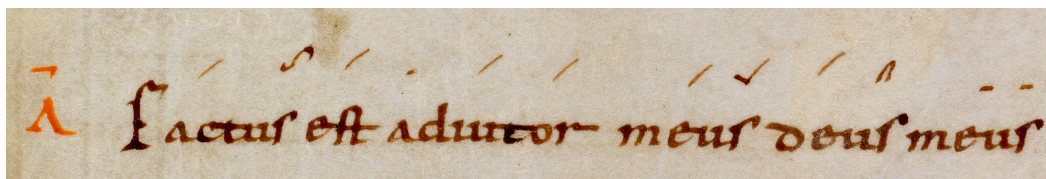 Ā Factus est adiutor meus deus meus